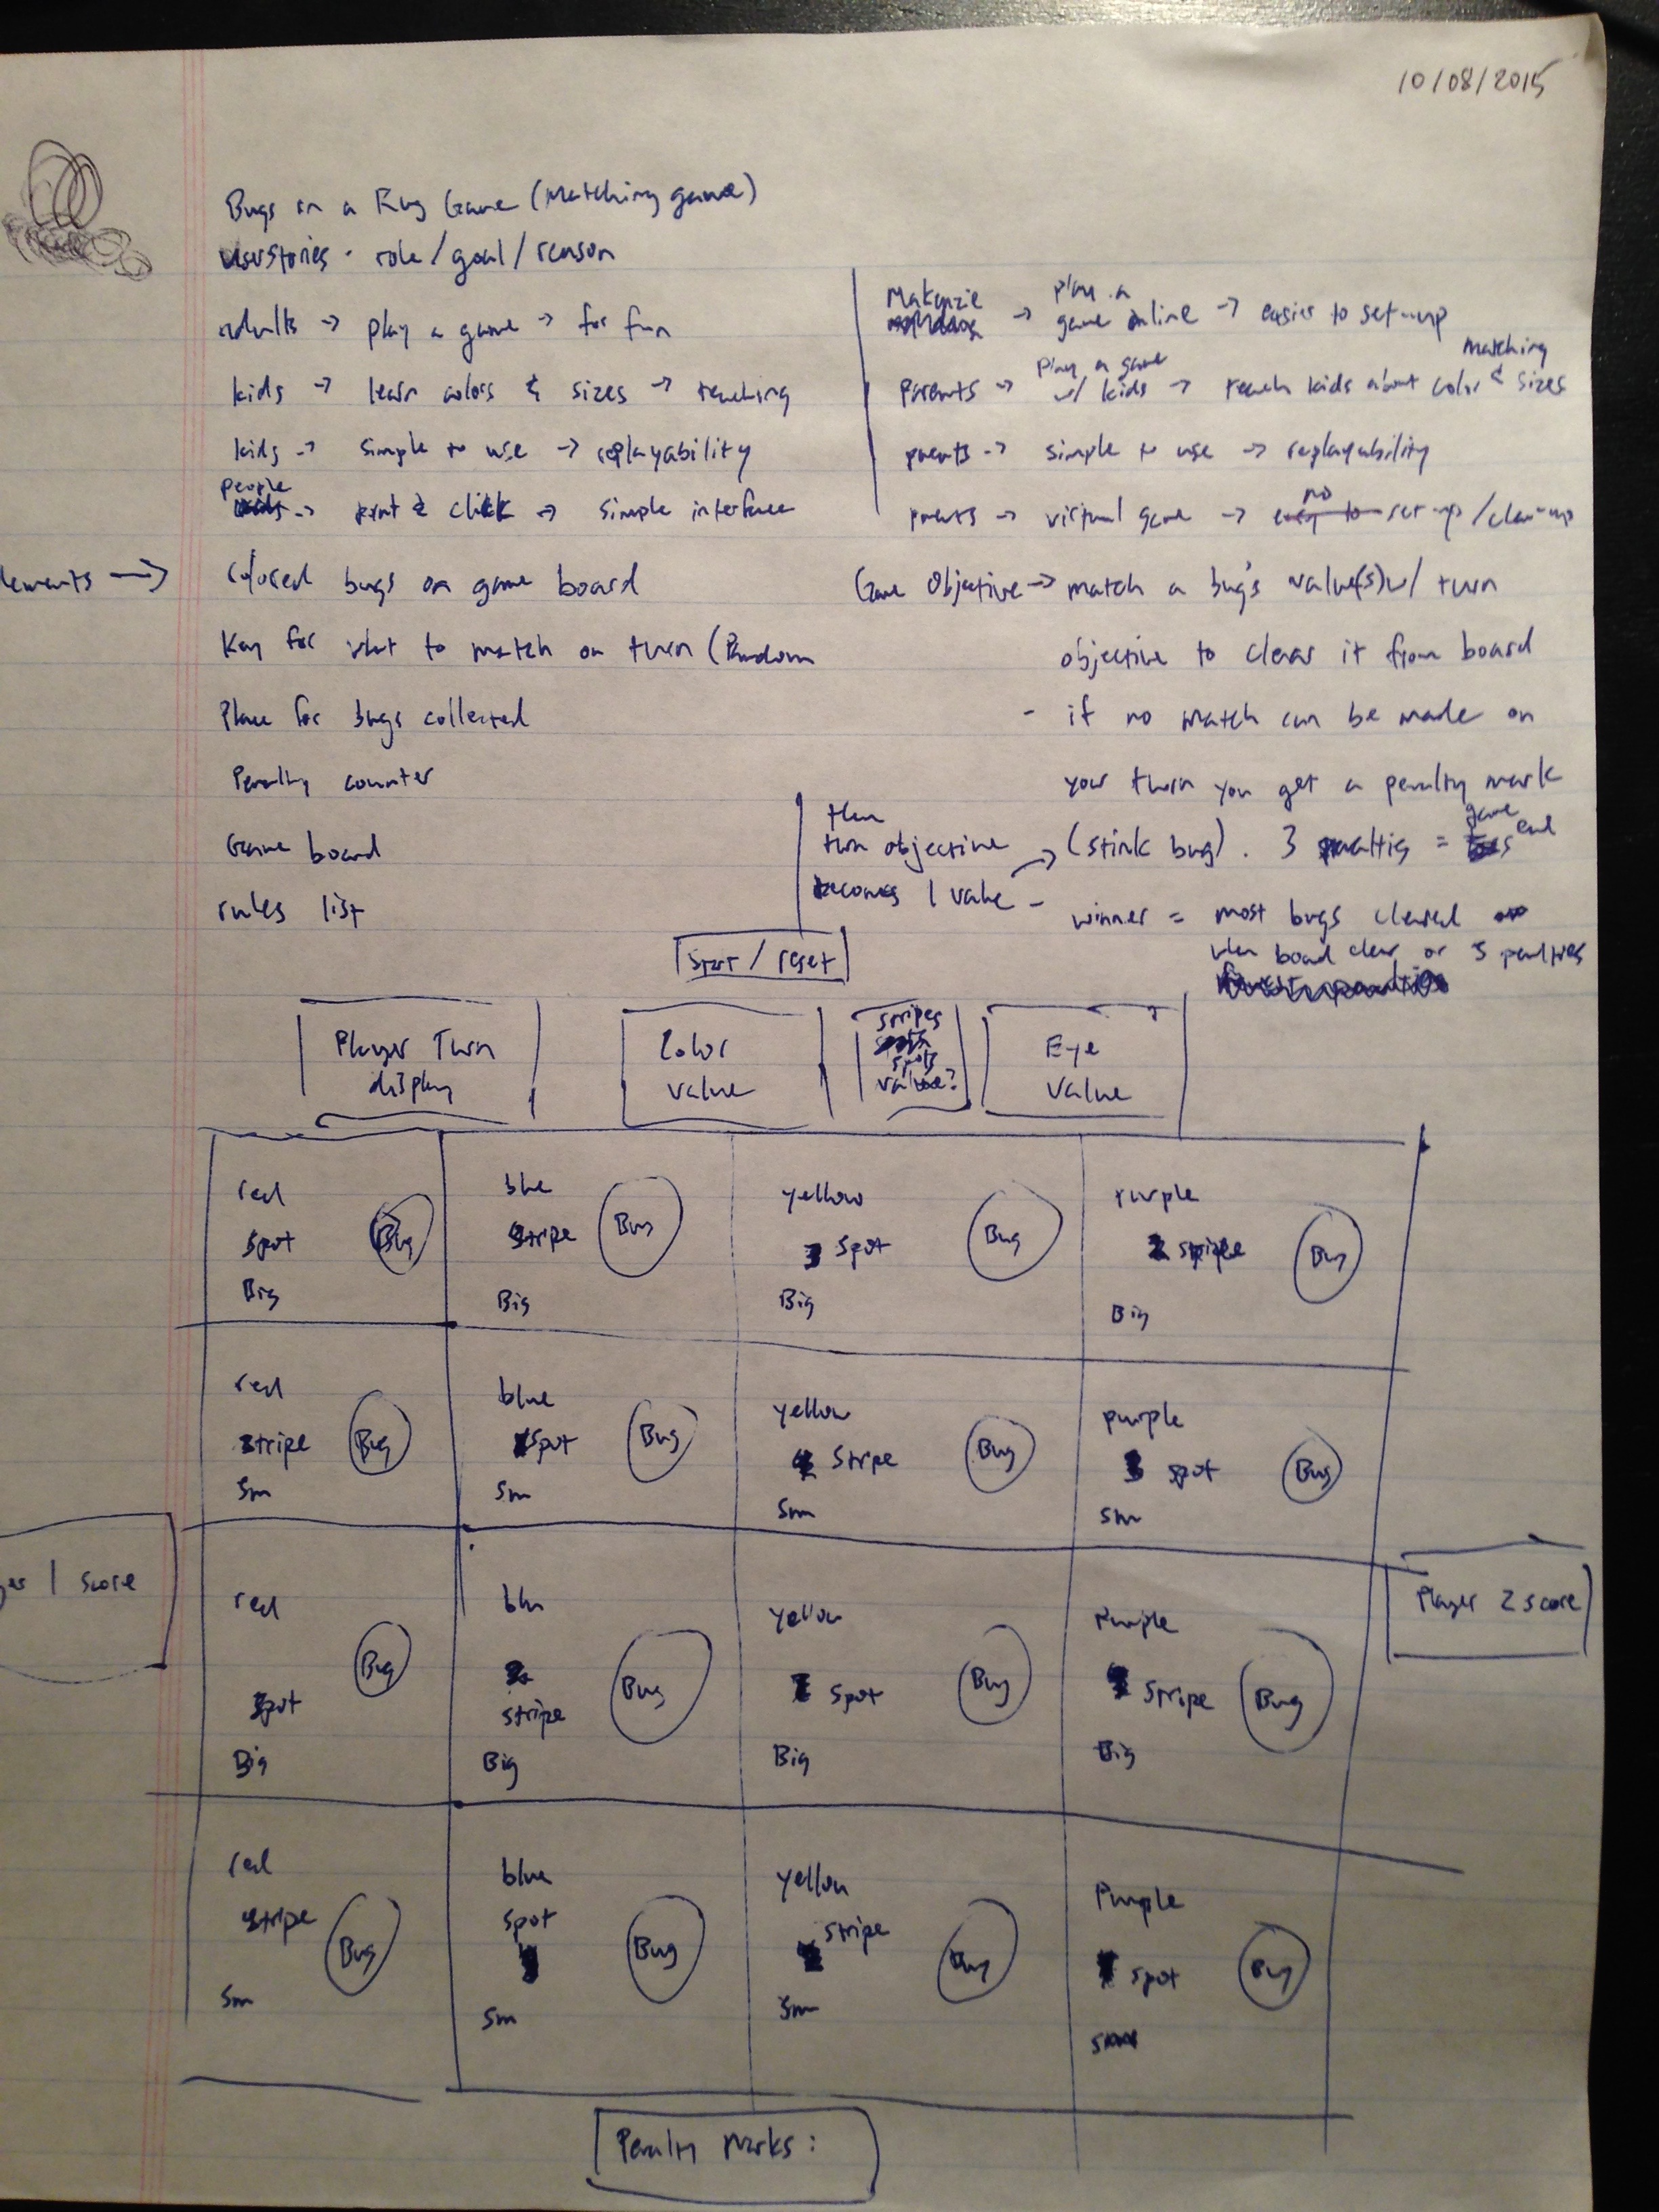 10/08/2015
Bugs in a Rug Game (Matching game)
userstories - role/goal/reason
adults → play a game → for fun
kids → learn colors & sizes → teaching
kids → simple to use → replayability
people
→ point & click → simple interface
Makenzie → play a game online → easier to set-up
parents → play a game w/ kids → teach kids about color & matching sizes
parents → simple to use → replayability
parents → virtual game → no set-up/clean-up
lements → colored bugs on game board
Key for what to match on turn (Random
Place for bugs collected
Penalty counter
Game board
rules list
Game Objective → match a bug's value(s) w/ turn
objective to clear it from board
- if no match can be made on
your turn you get a penalty mark
(stink bug). 3 penalties = game end
then
turn objective
becomes 1 value
- winner = most bugs cleared
when board clear or 3 penalties
Start / reset
Player Turn
display
Color
value
stripes
spots
value?
Eye
value
red
spot
Big
Bug
blue
stripe
Big
Bug
yellow
spot
Big
Bug
purple
stripe
Big
Bug
red
stripe
sm
Bug
blue
spot
sm
Bug
yellow
stripe
sm
Bug
purple
spot
sm
Bug
er 1 score
red
spot
Big
Bug
blu
stripe
Big
Bug
yellow
spot
Big
Bug
Purple
stripe
Big
Bug
Player 2 score
red
stripe
sm
Bug
blue
spot
sm
Bug
yellow
stripe
sm
Bug
Purple
spot
sm
Bug
Penalty Marks: